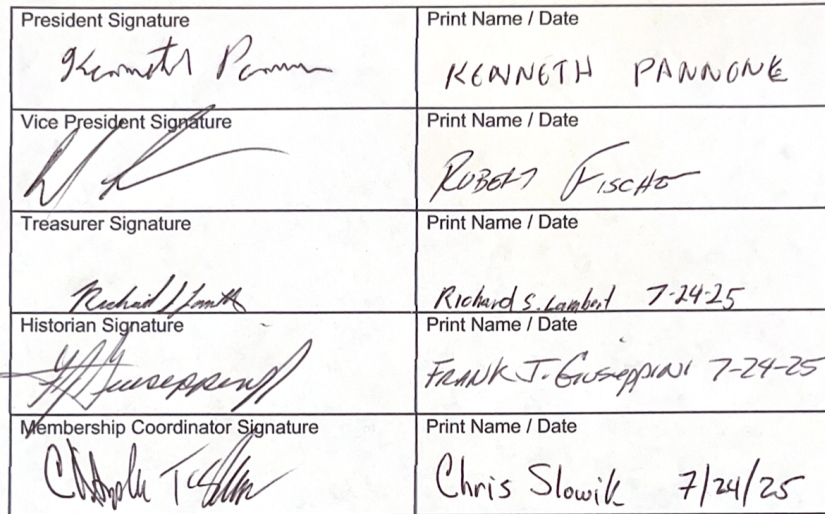 President Signature
Print Name / Date
Kenneth
KENNETH PANNONE
Vice President Signature
Print Name / Date
ROBERT
Treasurer Signature
Print Name / Date
Richard
Richard S. Lambert 7-24-25
Historian Signature
Print Name / Date
Giuseppini
FRANK J. GIUSEPPINI 7-24-25
Membership Coordinator Signature
Print Name / Date
Chris Slowik 7/24/25